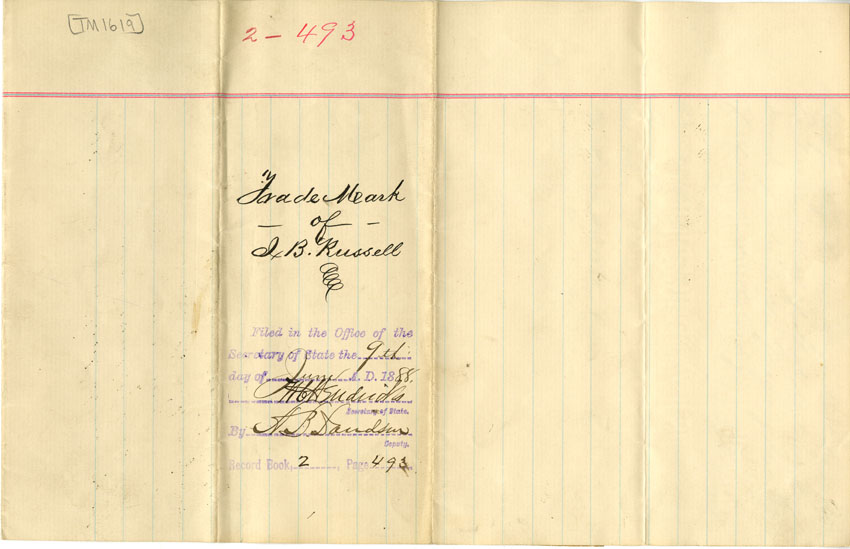 [TM1619]
2 - 493
Trade Mark
- of -
J. B. Russell
Filed in the Office of the
Secretary of State the 9th
day of June A. D. 1888.
Secretary of State.
By A B Davidson
Deputy.
Record Book, 2, Page 493